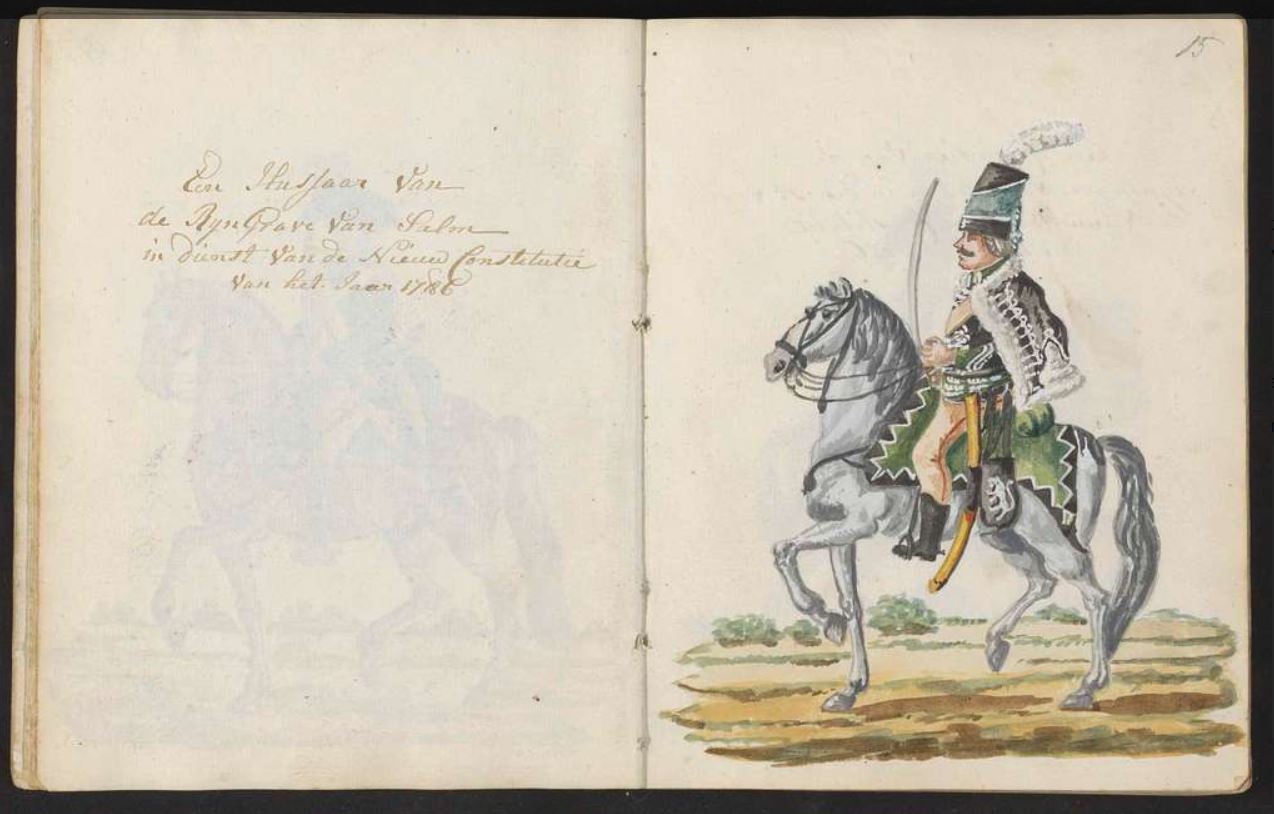 Een Hussaar Van
de RynGrave Van Salm
in dienst Van de Nieuw Constitutie
Van het Jaar 1786
15